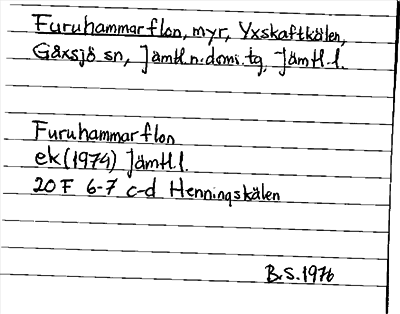 Furuhammarflon, myr, Yxskaftkälen,
Gåxsjö sn, Jämtl.n.doms.tg, Jämtl.l.
Furuhammarflon
ek (1974) Jämtl.l.
20 F 6-7 c-d Henningskälen
B.S. 1976